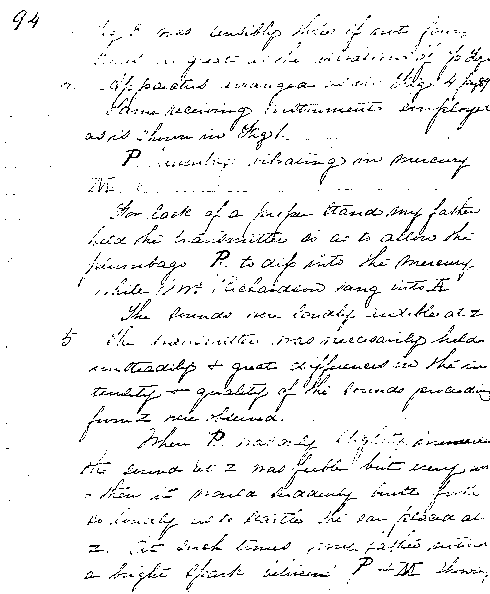 94
Fig 3 was sensibly three if not four
times as great as the vibrations of
Apparatus arranged as in Fig. 4 page 89
Same receiving instruments employed
as is shown in Fig 1.
P. plumbago vibrating in mercury
M.
For lack of a proper stand my father
held the transmitter so as to allow the
plumbago P. to dip into the mercury
while Mr Richardson sang into it
The sounds were loudly audible at Z
5 The transmitter was necessarily held
unsteadily & great differences in the in
tensity & quality of the sounds proceeding
from Z were observed.
When P. was only slightly immersed
the sound at Z was feeble but every
then it would suddenly burst forth
so loudly as to startle the ear placed at
Z. At such times my father noticed
a bright spark between P & M showing